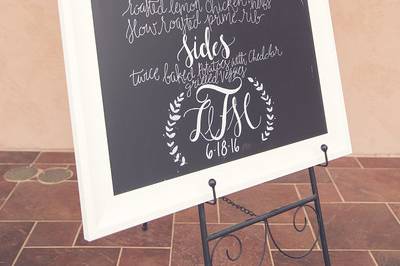 roasted lemon chicken
slow roasted prime rib
Sides
twice baked potatoes with cheddar
grilled veggies
6·18·16